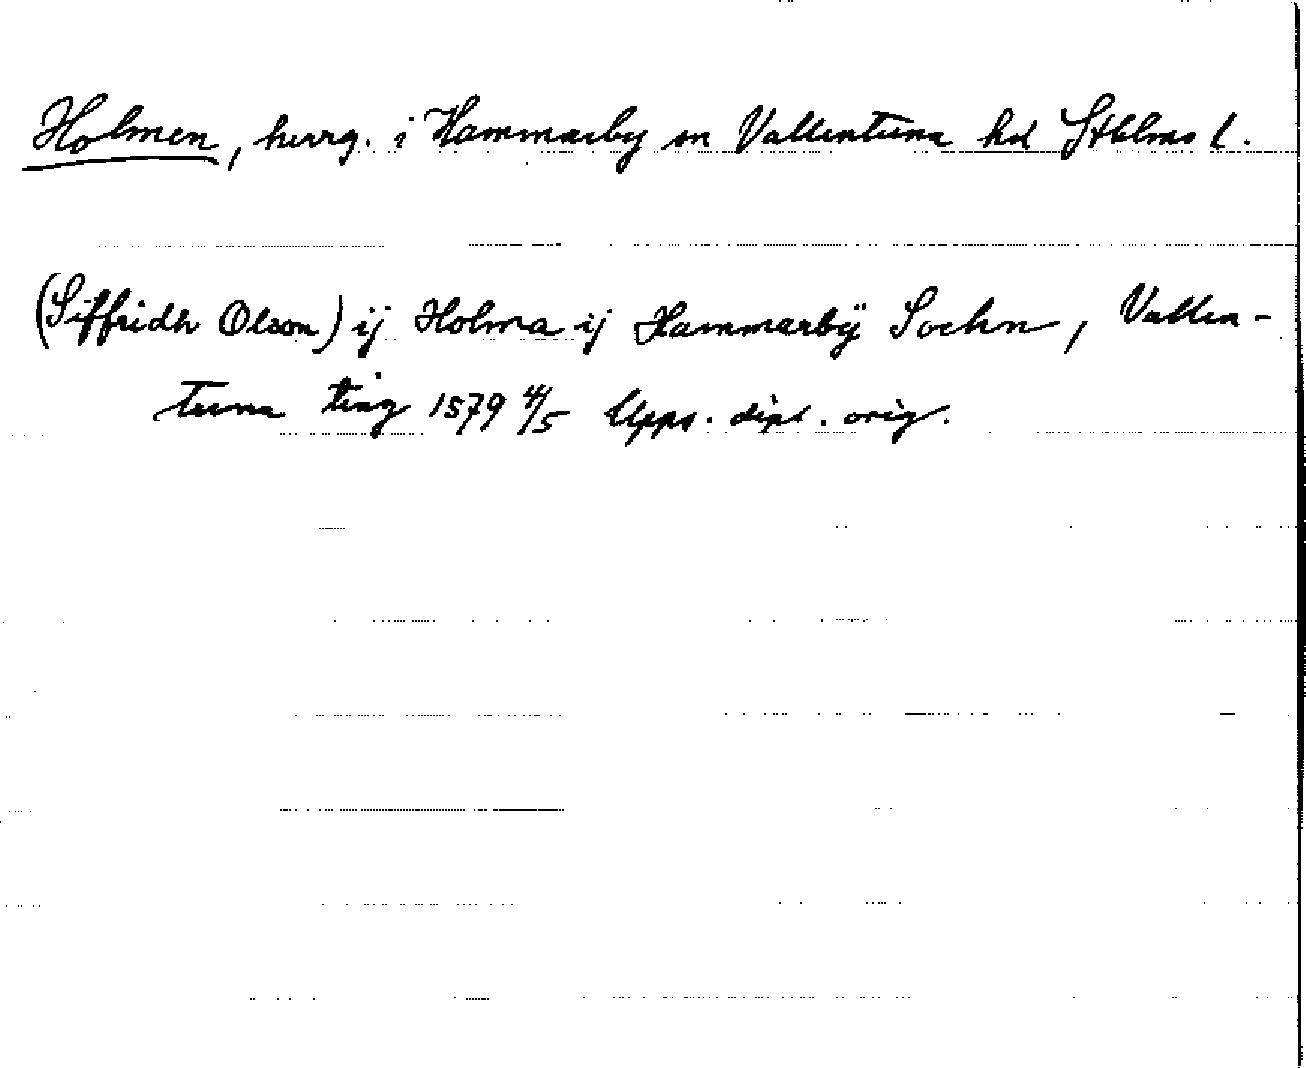 Holmen, herrg. i Hammarby sn Vallentuna hd Sthlms l.
(Siffridh Olson) ij Holma ij Hammarbÿ Sochn, Vallen-
tuna ting 1579 4/5 Upps. dipl. orig.